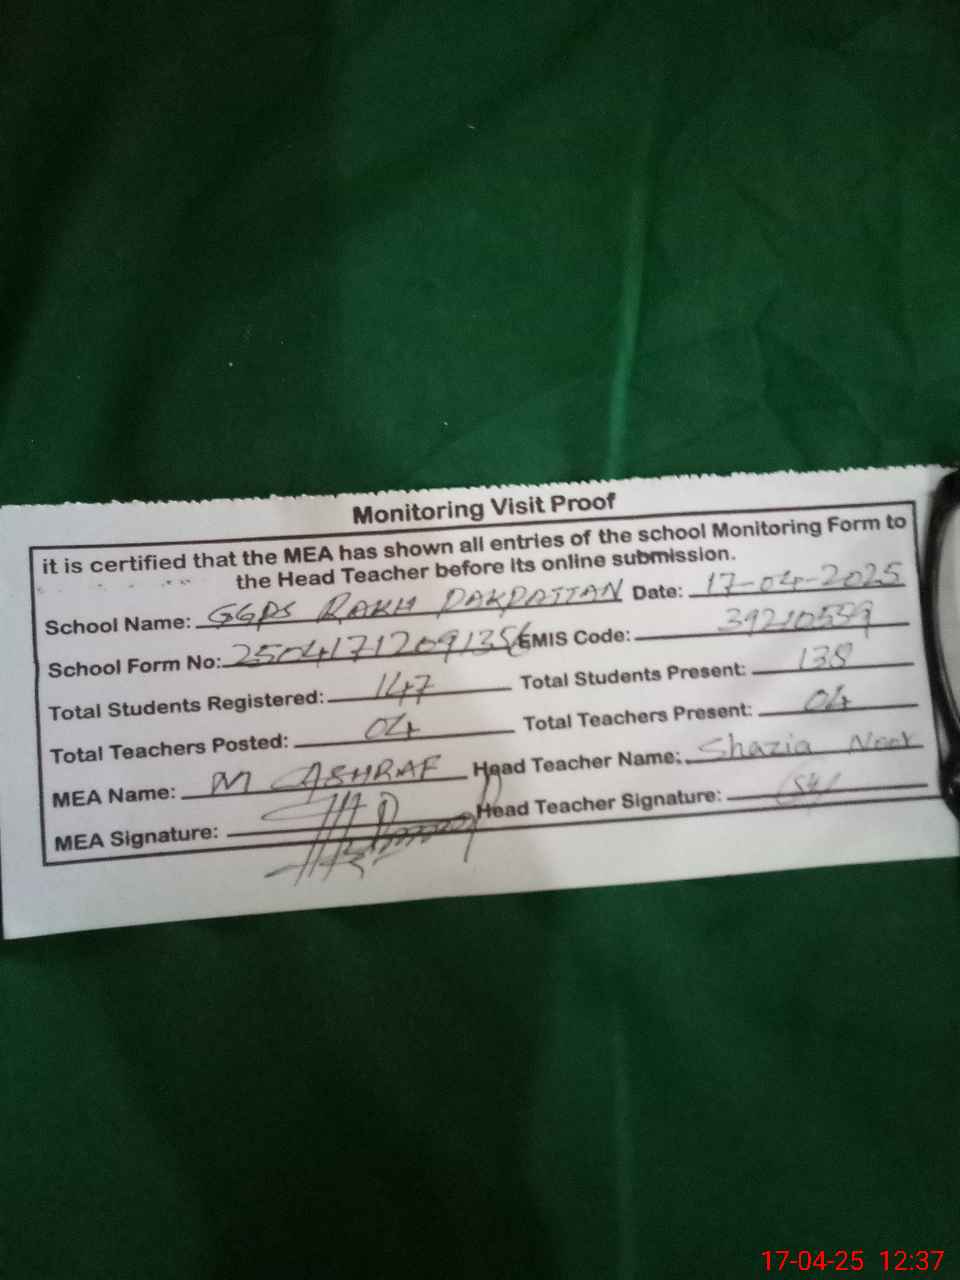 Monitoring Visit Proof
it is certified that the MEA has shown all entries of the school Monitoring Form to
the Head Teacher before its online submission.
School Name: GGPS RAKH PAKPATTAN Date: 17-04-2025
School Form No: EMIS Code: 39210559
Total Students Registered: 147 Total Students Present: 138
Total Teachers Posted: 04 Total Teachers Present: 04
MEA Name: M ASHRAF Head Teacher Name: Shazia
MEA Signature: Head Teacher Signature:
17-04-25 12:37